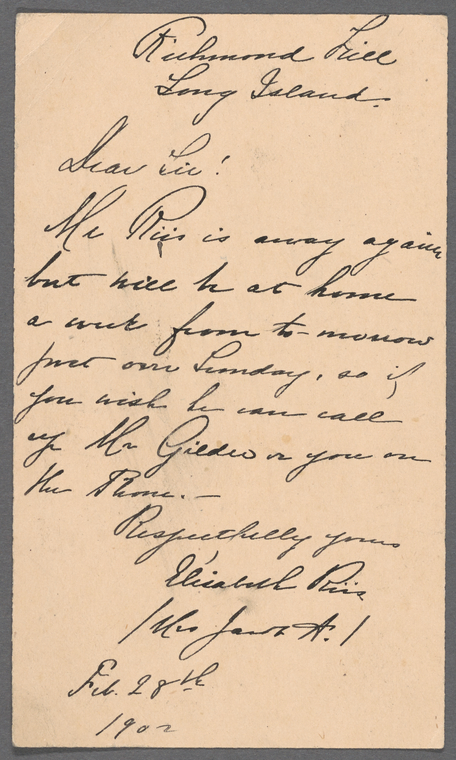 Richmond Hill
Long Island.
Dear Sir!
Mr Riis is away again
but will be at home
a week from to-morrow
just one Sunday, so if
you wish he can call
up Mr Gilder or you on
the Phone. —
Respectfully yours
Elisabeth Riis
/Mrs Jacob A./
Feb. 28th
1902